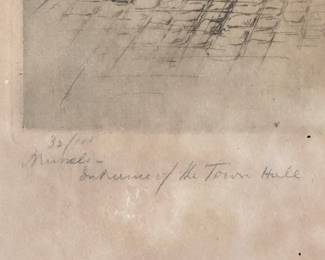 32/100
Entrance of the Town Hall